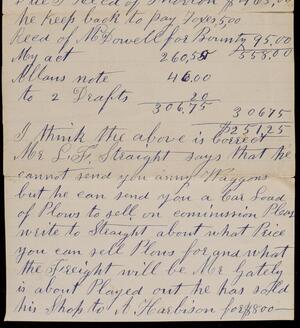 Recd of Thorton $ 463.00
he keep back to pay Taxes 5.00
Recd of McDowell for Bounty 95.00
My act 260,55 558.00
Allans note 46.00
to 2 Drafts 20
306.75 306 75
$251,25
I think the above is correct
Mr L. F. Straight says that he
cannot send you anny Waggons
but he can send you a Car Load
of Plows to sell on commission Pleas
write to Straight about what Price
you can sell Plows for and what
the Freight will be Mr Gately
is about Played out he has sold
his Shop to A Harbison for $800